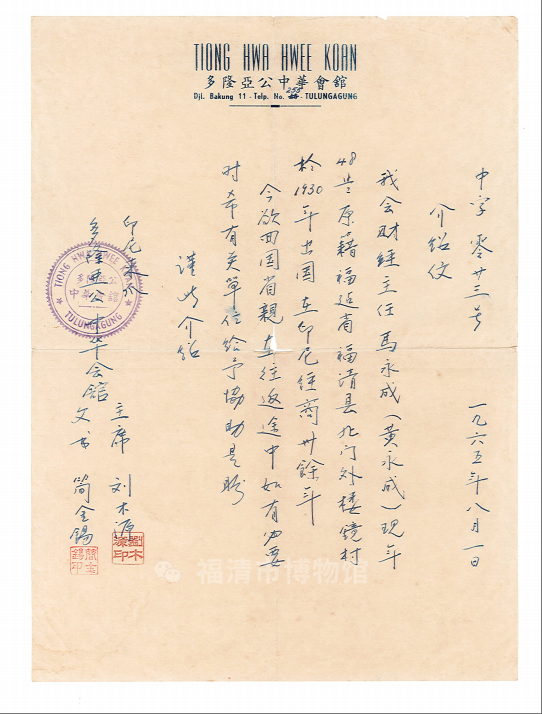 TIONG HWA HWEE KOAN
多隆亞公中華會舘
Djl. Bakung 11 - Telp. No. - TULUNGAGUNG
中字零廿三号
一九六五年八月一日
介绍文
我会财经主任馬永成（黃永成）现年
48岁原藉福建省福清县北门外楼镜村
於1930年出国在印尼经商卅餘年
今欲回国省親在往返途中如有必要
时希有关单位给予協助是盼
謹此介绍
印尼東爪
多隆亚公中华会舘
主席 刘木源
文书 简金锡
TIONG HWA HWEE KOAN
多隆亞公
中華會舘
TULUNGAGUNG
劉木源印
簡金錫印
福清市博物馆